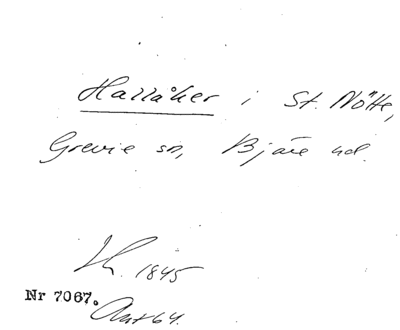 Hallåker i St. Nötte,
Grevie sn, Bjäre hd.
1845
Nr 7067.